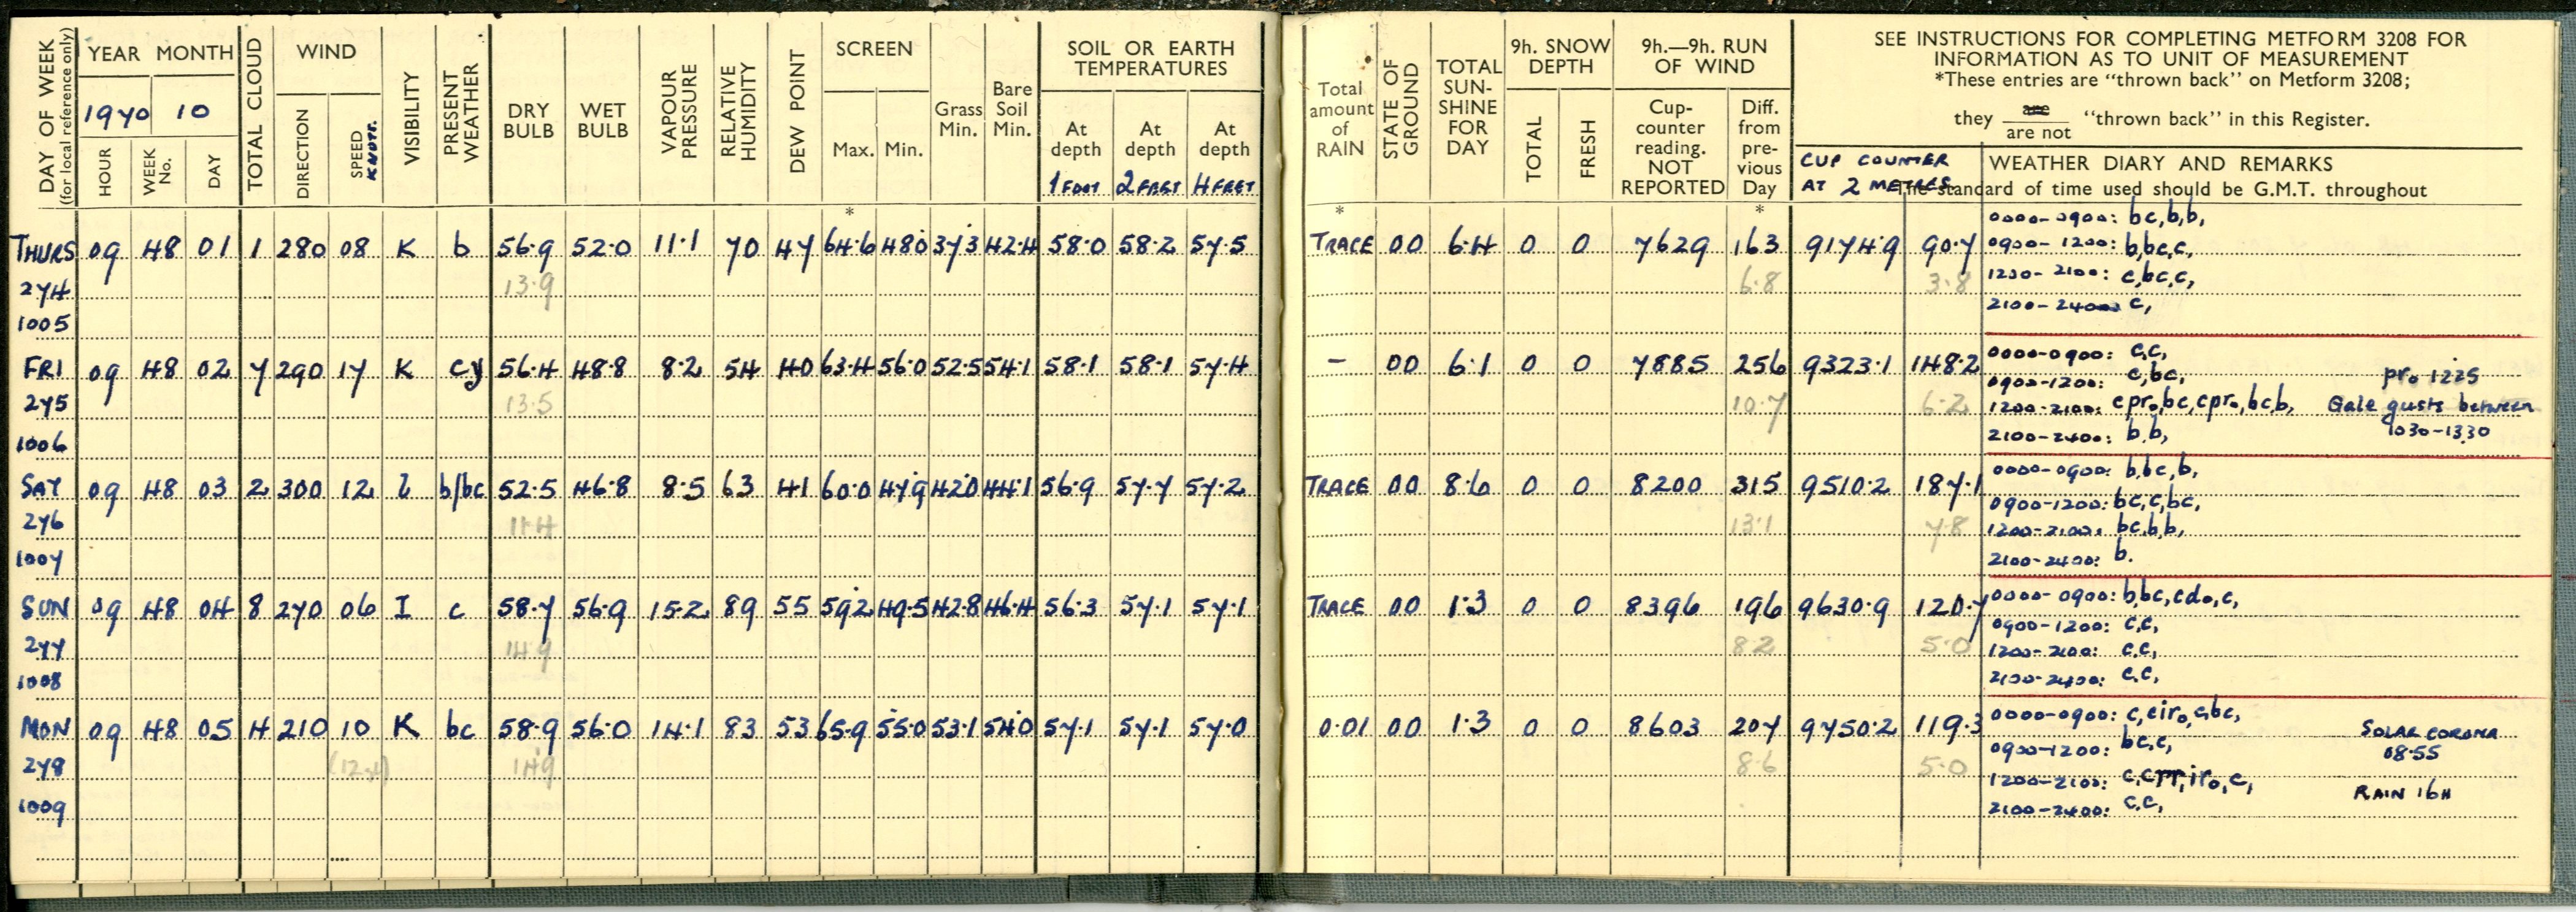 DAY OF WEEK
(for local reference only)
YEAR MONTH
1970 10
HOUR
WEEK No.
DAY
TOTAL CLOUD
WIND
DIRECTION
SPEED KNOTS.
VISIBILITY
PRESENT WEATHER
DRY BULB
WET BULB
VAPOUR PRESSURE
RELATIVE HUMIDITY
DEW POINT
SCREEN
Max. Min.
Grass Min.
Bare Soil Min.
SOIL OR EARTH TEMPERATURES
At depth 1 FOOT
At depth 2 FEET
At depth 4 FEET
Total amount of RAIN
STATE OF GROUND
TOTAL SUN-SHINE FOR DAY
9h. SNOW DEPTH
TOTAL
FRESH
9h.—9h. RUN OF WIND
Cup-counter reading. NOT REPORTED
Diff. from pre-vious Day
SEE INSTRUCTIONS FOR COMPLETING METFORM 3208 FOR
INFORMATION AS TO UNIT OF MEASUREMENT
*These entries are "thrown back" on Metform 3208;
they are / are not "thrown back" in this Register.
CUP COUNTER
AT 2 METRES
WEATHER DIARY AND REMARKS
The standard of time used should be G.M.T. throughout
* * *
THURS 09 48 01 1 280 08 K b 56.9 52.0 11.1 70 47 64.6 48.0 37.3 42.4 58.0 58.2 57.5 TRACE 00 6.4 0 0 7629 163 9174.9 90.7
274 13.9 6.8 3.8
1005
0000-0900: bc,b,b,
0900-1200: b,bc,c,
1200-2100: c,bc,c,
2100-2400 c,
FRI 09 48 02 7 290 17 K cy 56.4 48.8 8.2 54 40 63.4 56.0 52.5 54.1 58.1 58.1 57.4 – 00 6.1 0 0 7885 256 9323.1 148.2
275 13.5 10.7 6.2
1006
0000-0900: c,c,
0900-1200: c,bc, pr₀ 1225
1200-2100: cpr₀,bc,cpr₀,bc,b, Gale gusts between
2100-2400: b,b, 1030-1330
SAT 09 48 03 2 300 12 L b/bc 52.5 46.8 8.5 63 41 60.0 47.9 42.0 44.1 56.9 57.7 57.2 TRACE 00 8.6 0 0 8200 315 9510.2 187.1
276 11.4 13.1 7.8
1007
0000-0900: b,bc,b,
0900-1200: bc,c,bc,
1200-2100: bc,b,b,
2100-2400: b.
SUN 09 48 04 8 270 06 I c 58.7 56.9 15.2 89 55 59.2 49.5 42.8 46.4 56.3 57.1 57.1 TRACE 00 1.3 0 0 8396 196 9630.9 120.7
277 14.9 8.2 5.0
1008
0000-0900: b,bc,cd₀,c,
0900-1200: c,c,
1200-2100: c,c,
2100-2400: c,c,
MON 09 48 05 4 210 10 K bc 58.9 56.0 14.1 83 53 65.9 55.0 53.1 54.0 57.1 57.1 57.0 0.01 00 1.3 0 0 8603 207 9750.2 119.3
278 14.9 8.6 5.0
1009
0000-0900: c,cir₀,c,bc, SOLAR CORONA
0900-1200: bc,c, 08.55
1200-2100: c,crr,ir₀,c, RAIN 16H
2100-2400: c,c,